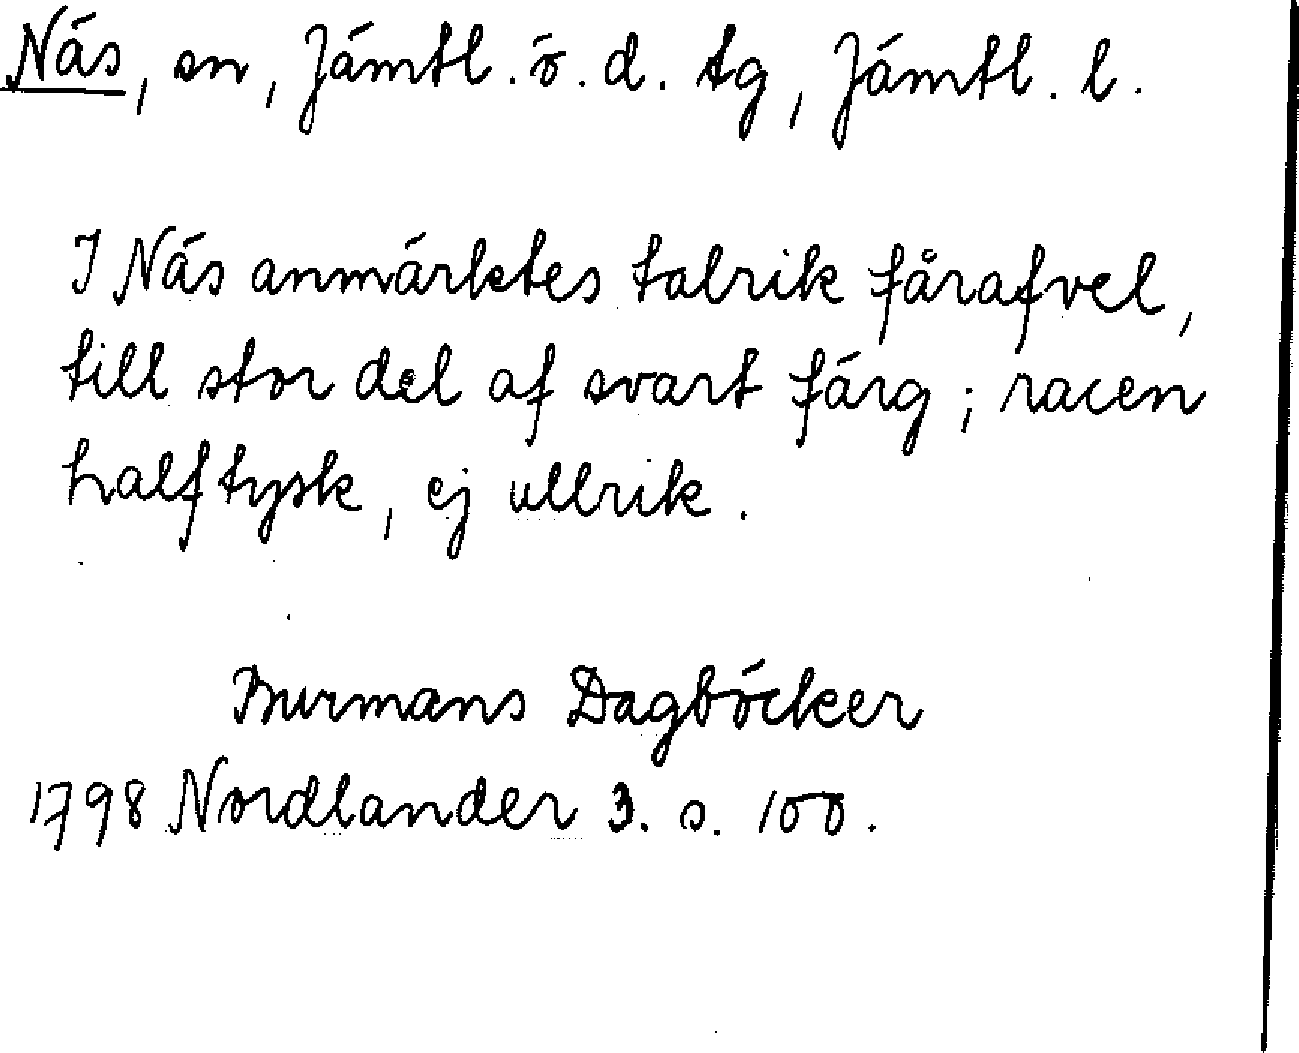 Näs, sn, Jämtl. ö. d. tg, Jämtl. l.
I Näs anmärktes talrik fårafvel,
till stor del af svart färg; racen
half tysk, ej ullrik.
Burmans Dagböcker
1798 Nordlander 3. s. 100.